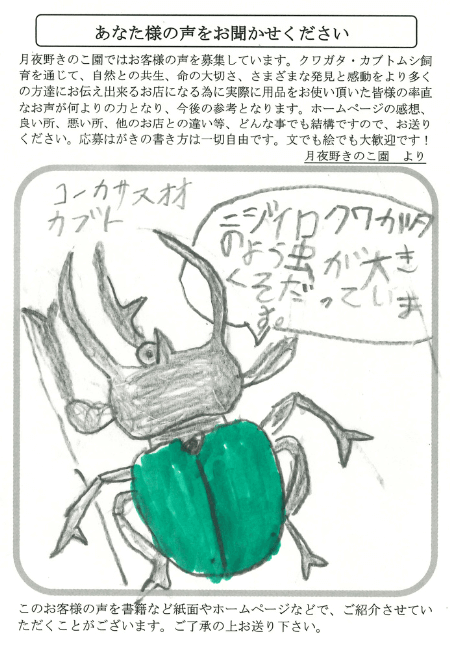 あなた様の声をお聞かせください
月夜野きのこ園ではお客様の声を募集しています。クワガタ・カブトムシ飼
育を通じて、自然との共生、命の大切さ、さまざまな発見と感動をより多く
の方達にお伝え出来るお店になる為に実際に用品をお使い頂いた皆様の率直
なお声が何よりの力となり、今後の参考となります。ホームページの感想、
良い所、悪い所、他のお店との違い等、どんな事でも結構ですので、お送り
ください。応募はがきの書き方は一切自由です。文でも絵でも大歓迎です！
月夜野きのこ園　より
コーカサスオオ
カブト
ニジイロクワガタ
のよう虫が大き
くそだっていま
す。
このお客様の声を書籍など紙面やホームページなどで、ご紹介させてい
ただくことがございます。ご了承の上お送り下さい。